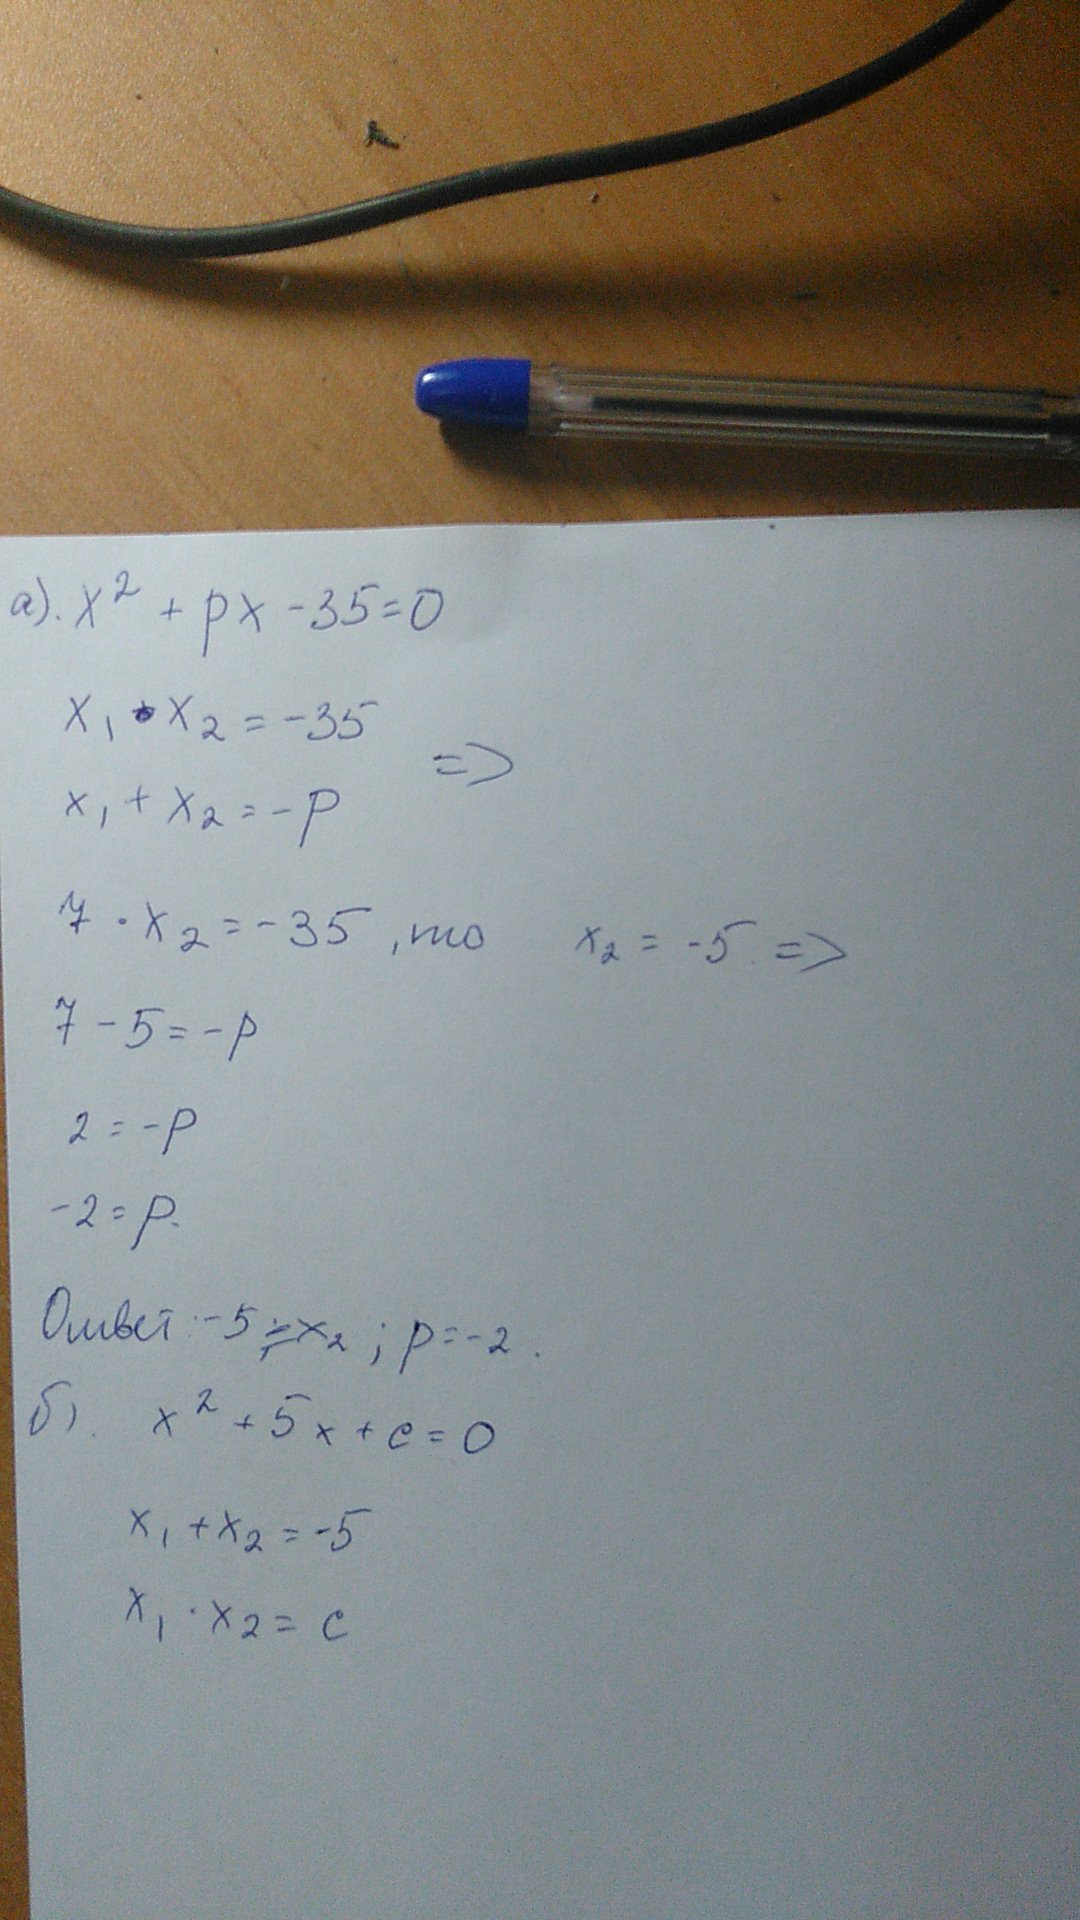 а). x² + px - 35 = 0
x₁ • x₂ = -35
=>
x₁ + x₂ = -p
7 · x₂ = -35, то x₂ = -5 =>
7 - 5 = -p
2 = -p
-2 = p.
Ответ: -5 = x₂ ; p = -2.
б). x² + 5x + c = 0
x₁ + x₂ = -5
x₁ · x₂ = c